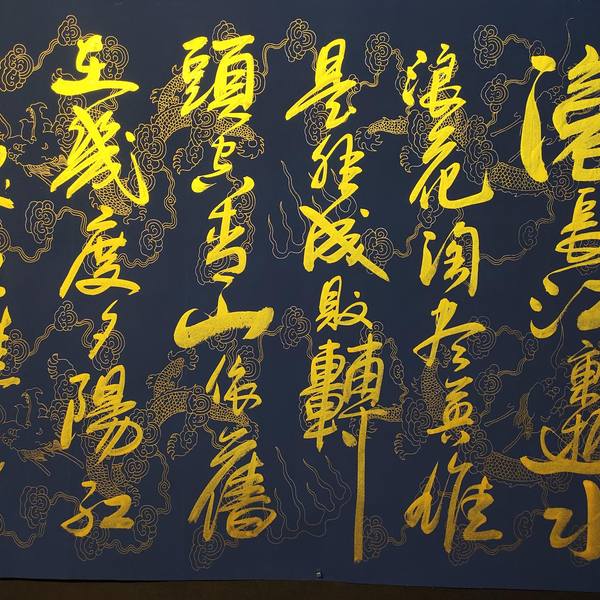 滾長江東逝水
浪花淘尽英雄
是非成敗轉
頭空青山依舊
在幾度夕陽紅